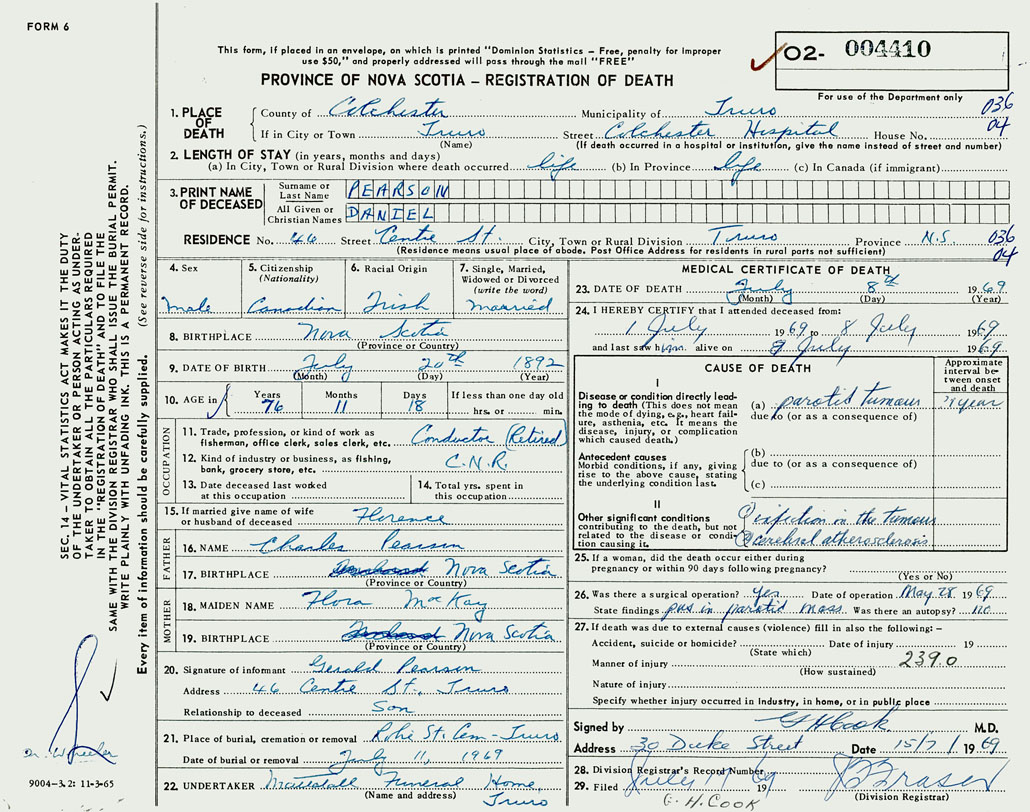 FORM 6
This form, if placed in an envelope, on which is printed "Dominion Statistics – Free, penalty for improper
use $50," and properly addressed will pass through the mail "FREE"
O2- 004410
For use of the Department only
PROVINCE OF NOVA SCOTIA – REGISTRATION OF DEATH
1. PLACE OF DEATH
County of Colchester Municipality of Truro 036
If in City or Town Truro Street Colchester Hospital House No. 04
(Name) (If death occurred in a hospital or institution, give the name instead of street and number)
2. LENGTH OF STAY (in years, months and days)
(a) In City, Town or Rural Division where death occurred life (b) In Province life (c) In Canada (if immigrant)
3. PRINT NAME OF DECEASED
Surname or Last Name PEARSON
All Given or Christian Names DANIEL
RESIDENCE No. 46 Street Centre St. City, Town or Rural Division Truro Province N.S. 036
(Residence means usual place of abode. Post Office Address for residents in rural parts not sufficient) 04
4. Sex Male
5. Citizenship (Nationality) Canadian
6. Racial Origin Irish
7. Single, Married, Widowed or Divorced (write the word) married
8. BIRTHPLACE Nova Scotia
(Province or Country)
9. DATE OF BIRTH July 20th 1892
(Month) (Day) (Year)
10. AGE in Years 76 Months 11 Days 18 If less than one day old hrs. or min.
OCCUPATION
11. Trade, profession, or kind of work as fisherman, office clerk, sales clerk, etc. Conductor (Retired)
12. Kind of industry or business, as fishing, bank, grocery store, etc. C.N.R.
13. Date deceased last worked at this occupation
14. Total yrs. spent in this occupation
15. If married give name of wife or husband of deceased Florence
FATHER
16. NAME Charles Pearson
17. BIRTHPLACE Nova Scotia
(Province or Country)
MOTHER
18. MAIDEN NAME Flora MacKay
19. BIRTHPLACE Nova Scotia
(Province or Country)
20. Signature of informant Gerald Pearson
Address 46 Centre St., Truro
Relationship to deceased Son
21. Place of burial, cremation or removal Robie St. Cem - Truro
Date of burial or removal July 11, 1969
22. UNDERTAKER Mattatall Funeral Home,
(Name and address) Truro
MEDICAL CERTIFICATE OF DEATH
23. DATE OF DEATH July 8th 1969
(Month) (Day) (Year)
24. I HEREBY CERTIFY that I attended deceased from:
1 July 1969 to 8 July 1969
and last saw him alive on July 1969
CAUSE OF DEATH
Approximate interval between onset and death
I
Disease or condition directly leading to death (This does not mean the mode of dying, e.g., heart failure, asthenia, etc. It means the disease, injury, or complication which caused death.)
(a) parotid tumour year
due to (or as a consequence of)
Antecedent causes
Morbid conditions, if any, giving rise to the above cause, stating the underlying condition last.
(b)
due to (or as a consequence of)
(c)
II
Other significant conditions contributing to the death, but not related to the disease or condition causing it.
infection in the tumour
cerebral atherosclerosis
25. If a woman, did the death occur either during pregnancy or within 90 days following pregnancy?
(Yes or No)
26. Was there a surgical operation? yes Date of operation May 28 1969
State findings pus in parotid mass. Was there an autopsy? no
27. If death was due to external causes (violence) fill in also the following: –
Accident, suicide or homicide? Date of injury 19
(State which)
Manner of injury 239.0
(How sustained)
Nature of injury
Specify whether injury occurred in industry, in home, or in public place
Signed by GHCook M.D.
Address 30 Duke Street Date 15/7/1969
28. Division Registrar's Record Number
29. Filed July 1969
(Division Registrar)
G. H. COOK
SEC. 14 – VITAL STATISTICS ACT MAKES IT THE DUTY
OF THE UNDERTAKER OR PERSON ACTING AS UNDER-
TAKER TO OBTAIN ALL THE PARTICULARS REQUIRED
IN THE "REGISTRATION OF DEATH" AND TO FILE THE
SAME WITH THE DIVISION REGISTRAR WHO SHALL ISSUE THE BURIAL PERMIT.
WRITE PLAINLY WITH UNFADING INK. THIS IS A PERMANENT RECORD.
Every item of information should be carefully supplied. (See reverse side for instructions.)
Dr. Wheeler
9004-3.2: 11-3-65